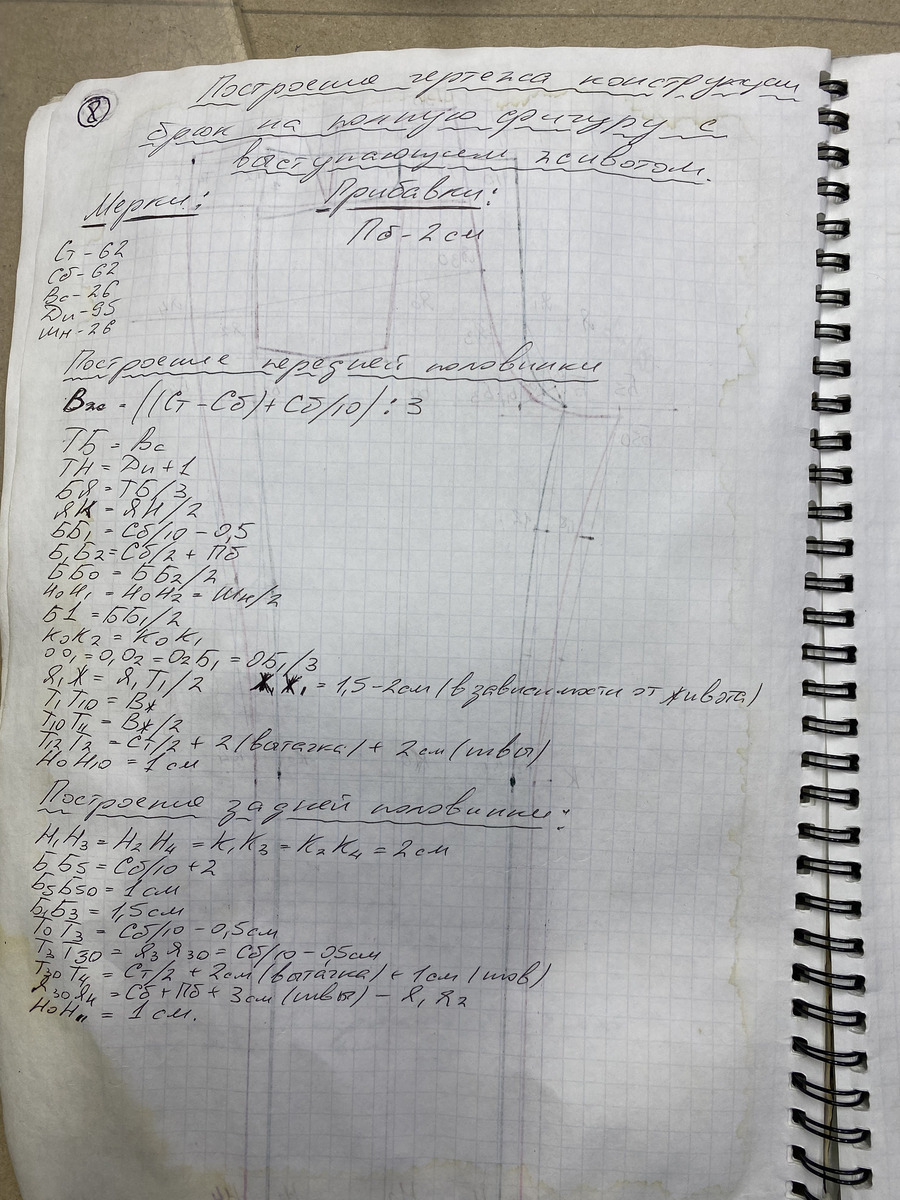 8
Построение чертежа конструкции
брюк на полную фигуру с
выступающем животом.
Мерки: Прибавки:
Пб - 2 см
Ст - 62
Сб - 62
Вс - 26
Дп - 95
Шн - 26
Построение передней половинки
Вж = ((Ст - Сб) + Сб/10) : 3
ТБ = Вс
ТН = Дп + 1
БЯ = ТБ/3
ЯК = ЯН/2
ББ₁ = Сб/10 - 0,5
Б₁Б₂ = Сб/2 + Пб
ББ₀ = ББ₂/2
Н₀Н₁ = Н₀Н₂ = Шн/2
Б1 = ББ₁/2
К₀К₂ = К₀К₁
ОО₁ = О₁О₂ = О₂Б₁ = ОБ₁/3
Я₁Ж = Я₁Т₁/2 Ж₁Ж₁ = 1,5 - 2см (в зависимости от живота)
Т₁Т₁₀ = Вж
Т₁₀Т₁₁ = Вж/2
Т₁₂Т₂ = Ст/2 + 2 (вытачка) + 2 см (швы)
Н₀Н₁₀ = 1 см
Построение задней половинки:
Н₁Н₃ = Н₂Н₄ = К₁К₃ = К₂К₄ = 2 см
Б₁Б₅ = Сб/10 + 2
Б₅Б₅₀ = 1 см
Б₁Б₃ = 1,5 см
Т₀Т₃ = Сб/10 - 0,5 см
Т₃Т₃₀ = Я₃Я₃₀ = Сб/10 - 0,5 см
Т₃₀Т₄ = Ст/2 + 2см (вытачка) + 1 см (шов)
Я₃₀Я₄ = Сб + Пб + 3 см (швы) - Я₁Я₂
Н₀Н₁₁ = 1 см.